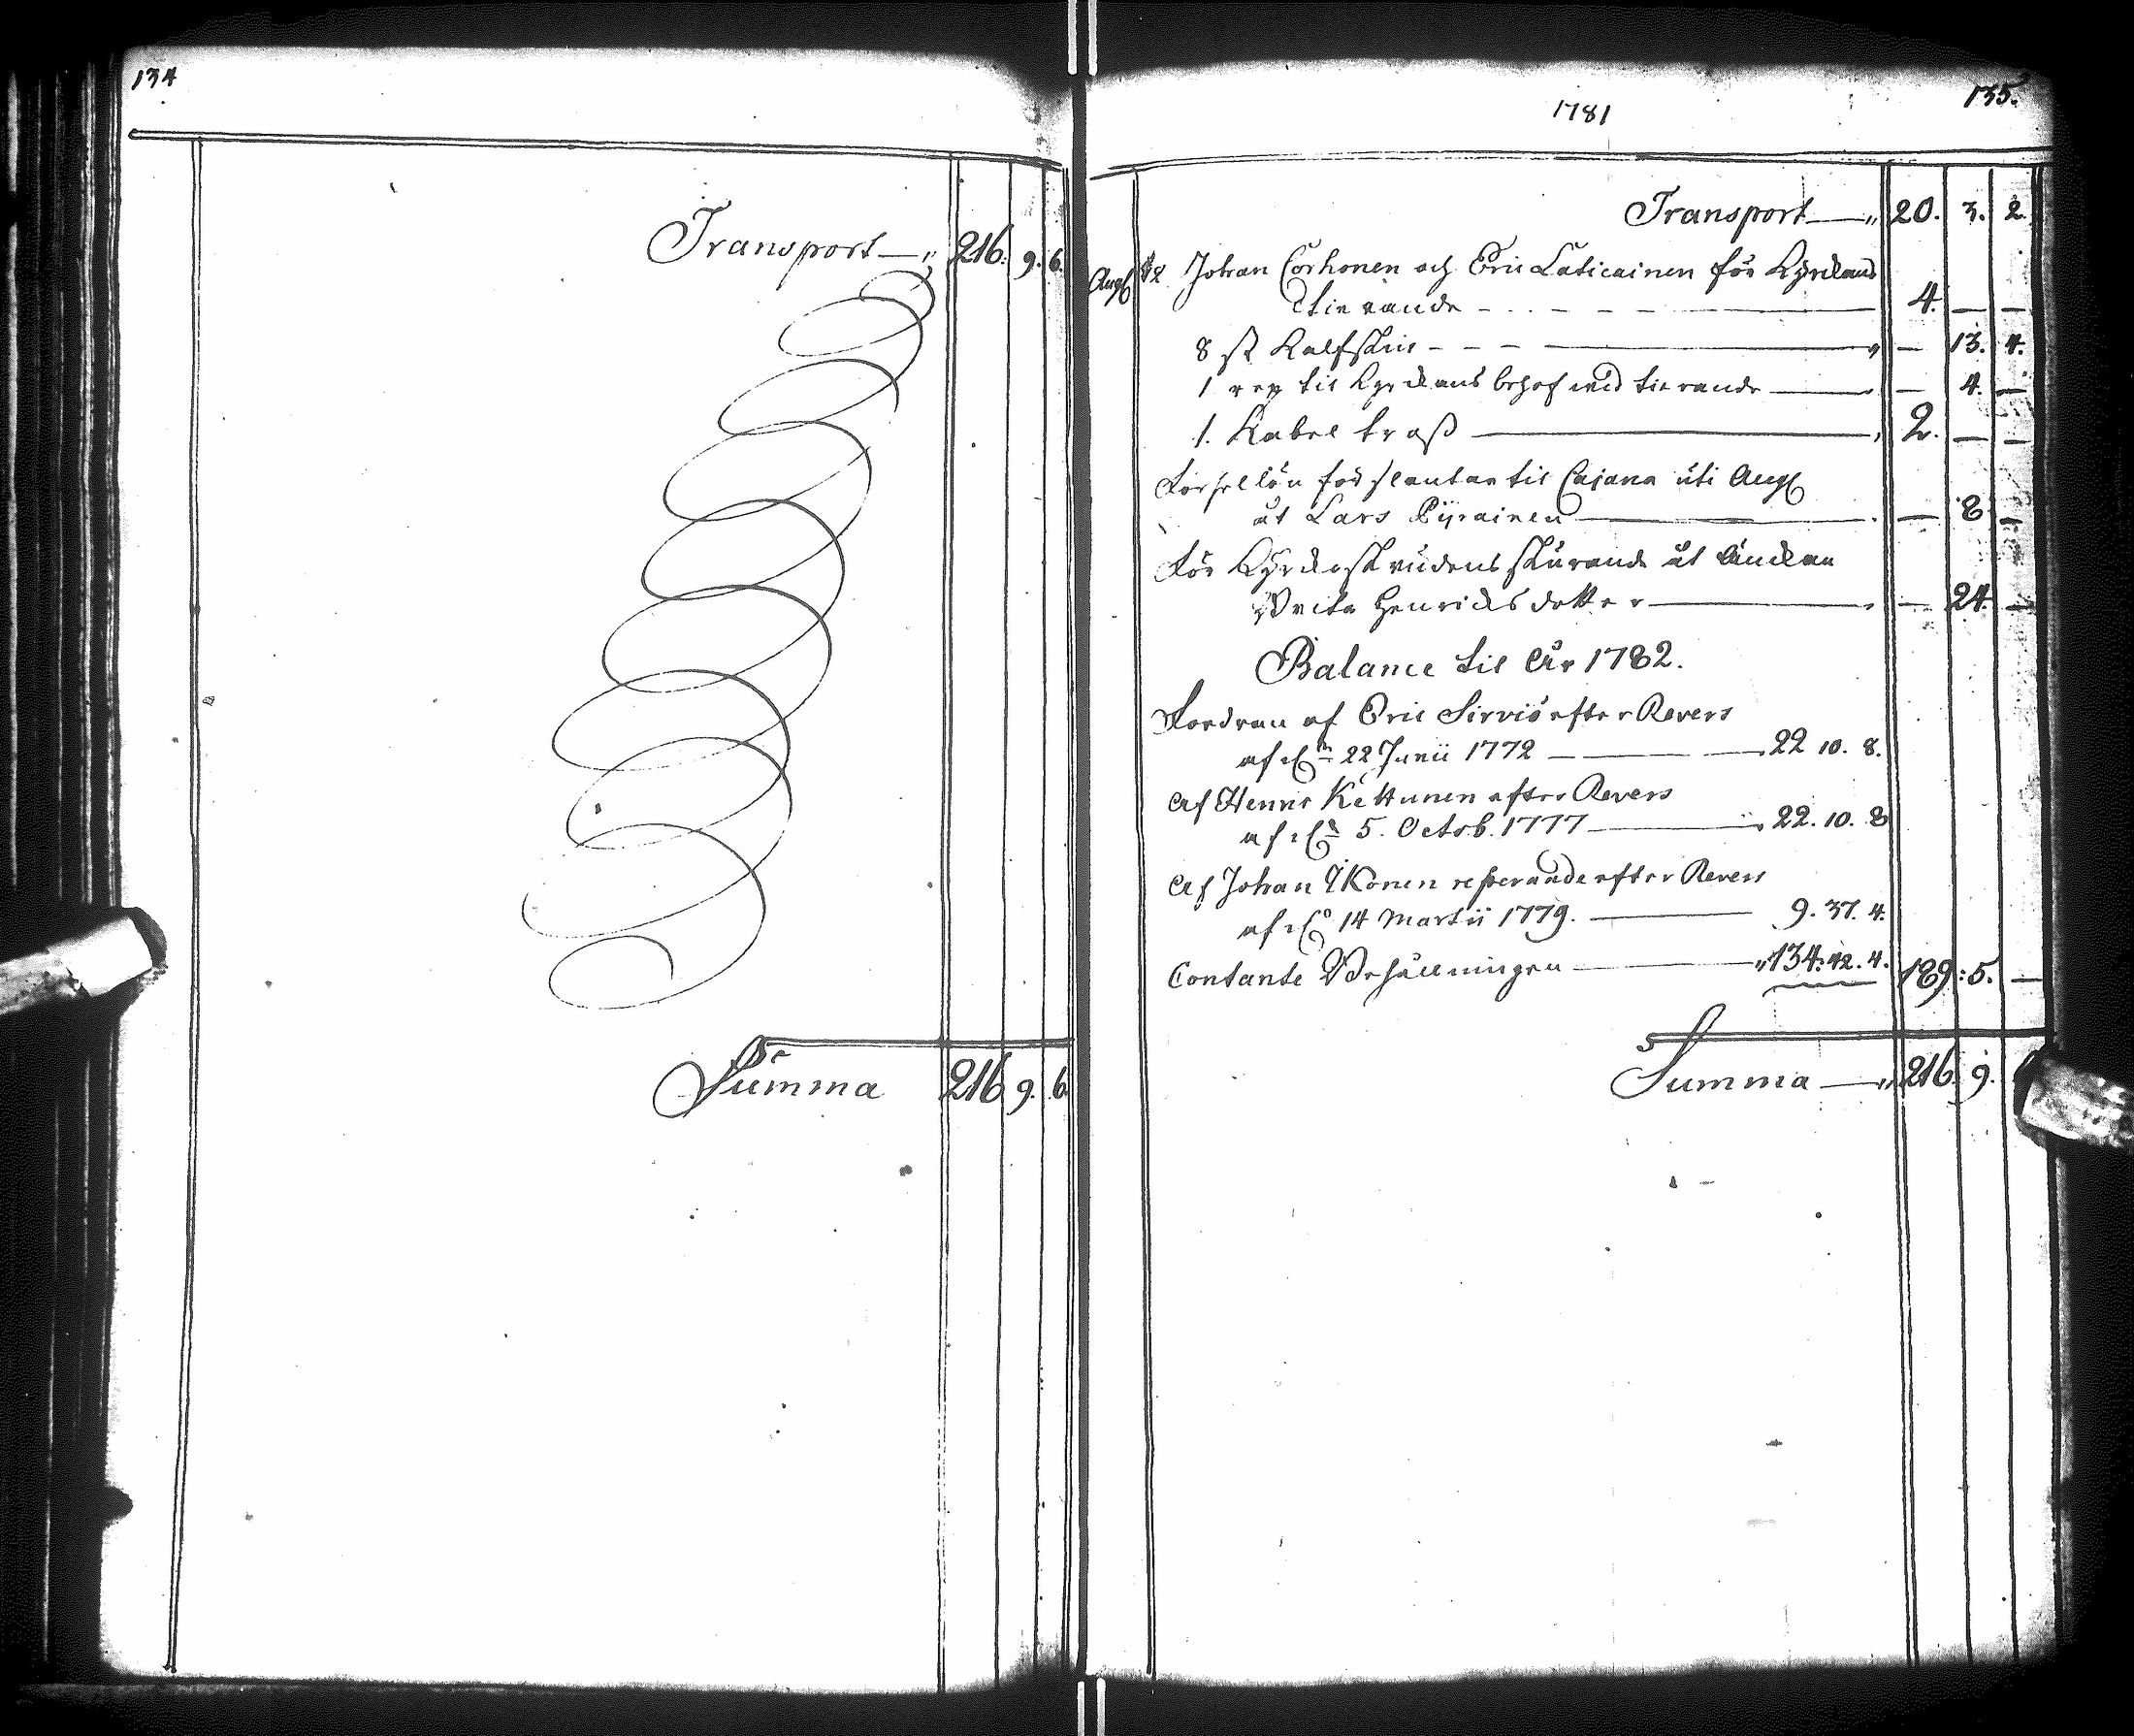 134
Transport — „ 216. 9. 6.
Summa 216 9. 6
1781
135.
Transport — „ 20. 3. 2.
Aug. 12 Johan Corhonen och Eric Laticainen för Kyrckans
tierande — 4. — —
8 st Kalfskin — „ — 13. 4.
1 rep til Kyrckans behof wid tierande — — 4. —
1. Kabel tross — 2. — —
Forsellön för slantar til Cajana uti Aug.
åt Lars Pyrainen — — 8 —
För Kyrckoskrudens skurande åt Änckan
Brita Henricksdotter — — 24. —
Balance til År 1782.
Fordran af Eric Sirviö efter Revers
af d. 22 Junii 1772 — 22 10. 8.
Af Henric Kettunen efter Revers
af d. 5. Octob. 1777 — „ 22. 10. 8
Af Johan Ikonen resterande efter Revers
af d. 14 Martii 1779. — 9. 37. 4.
Contante Behållningen — „ 134: 42. 4. 189: 5. —
Summa — „ 216. 9.